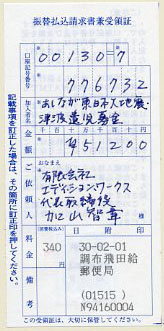 振替払込請求書兼受領証
口座記号番号
00130-7
776732
加入者名
あしなが東日本大地震・
津波遺児募金
金額
千百十万千百十円
¥51200
ご依頼人
おなまえ
有限会社
エディションワークス
代表取締役
加山智章 様
料金
340
日附印
30-02-01
調布飛田給
郵便局
(01515)
N94160004
備考
この受領証は、大切に保管してください。
記載事項を訂正した場合は、その箇所に訂正印を押してください。